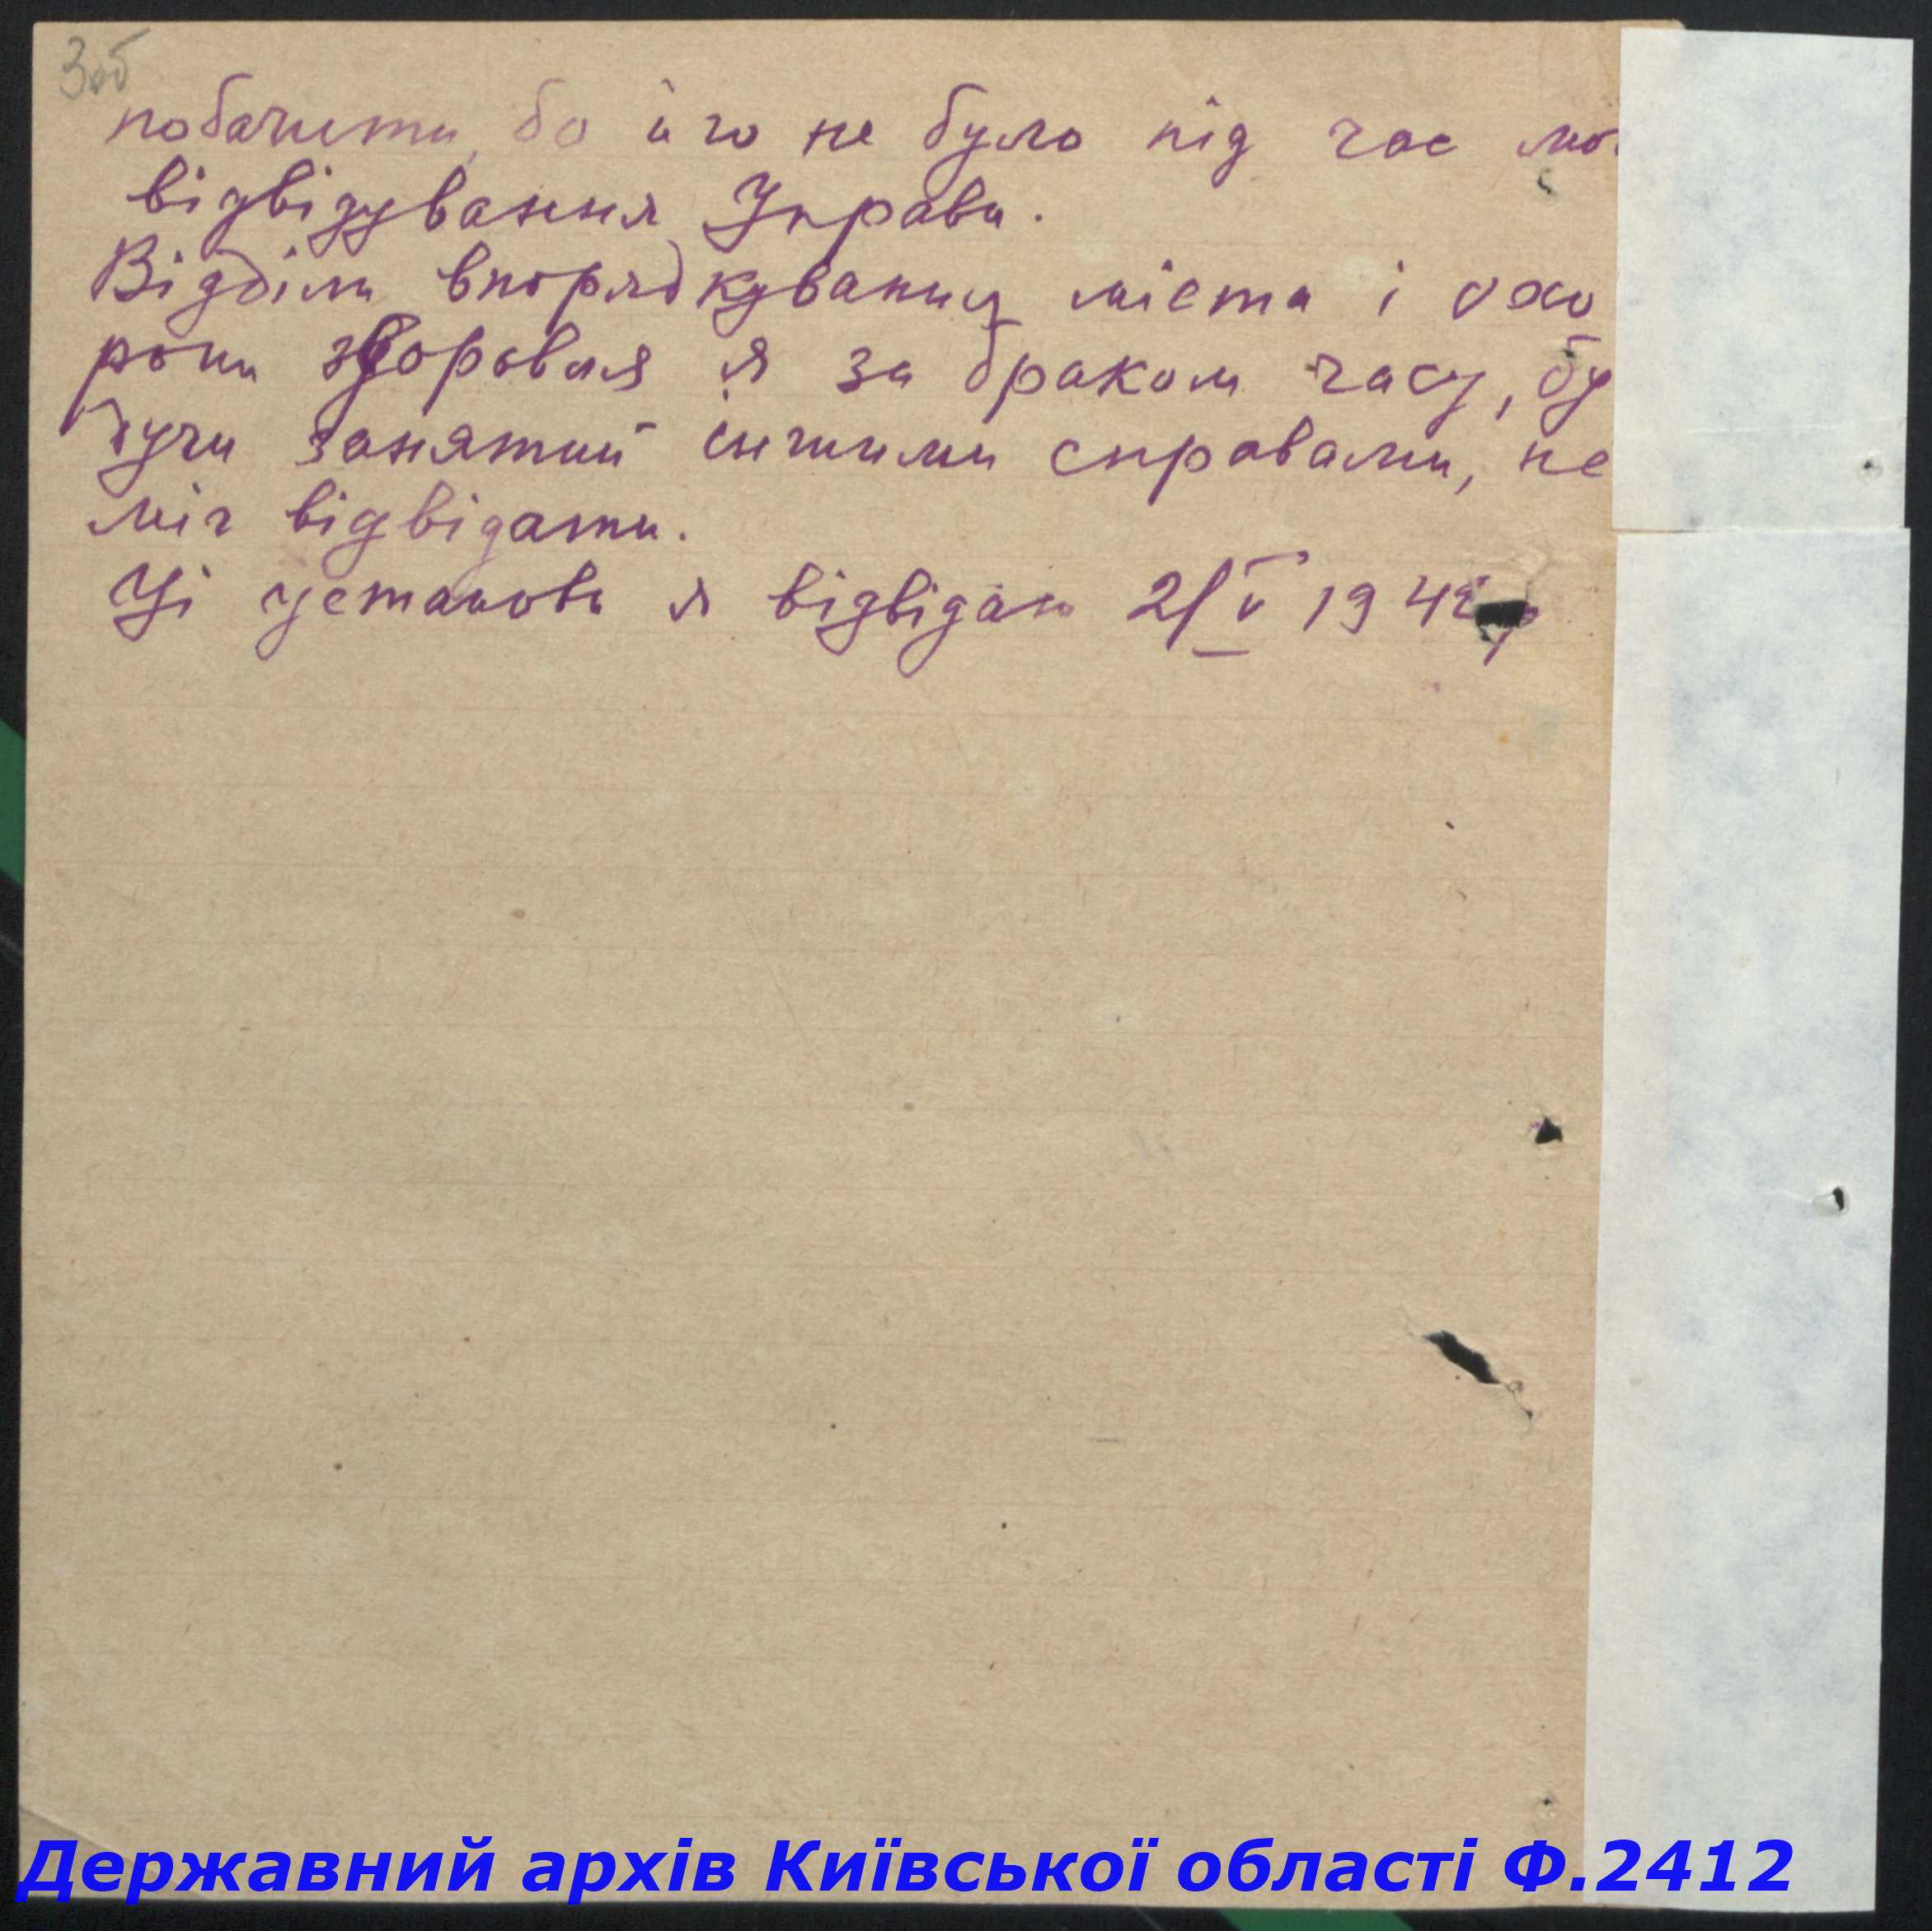 3об
побачити, бо його не було під час мо
відвідування Управи.
Відділи впорядкування міста і охо
рони здоровля я за браком часу, бу
дучи занятий іншими справами, не
міг відвідати.
Ці установи я відвідаю 2/V 1942 р
Державний архів Київської області Ф.2412